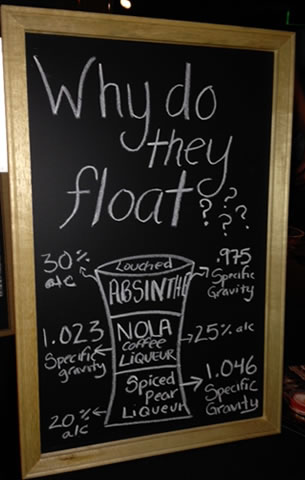 Why do
they
float
? ? ? ?
30%
alc
Louched
ABSINTHE
.975
Specific
Gravity
1.023
Specific
gravity
NOLA
Coffee
LIQUEUR
25% alc
Spiced
Pear
LiQueur
1.046
Specific
Gravity
20%
alc